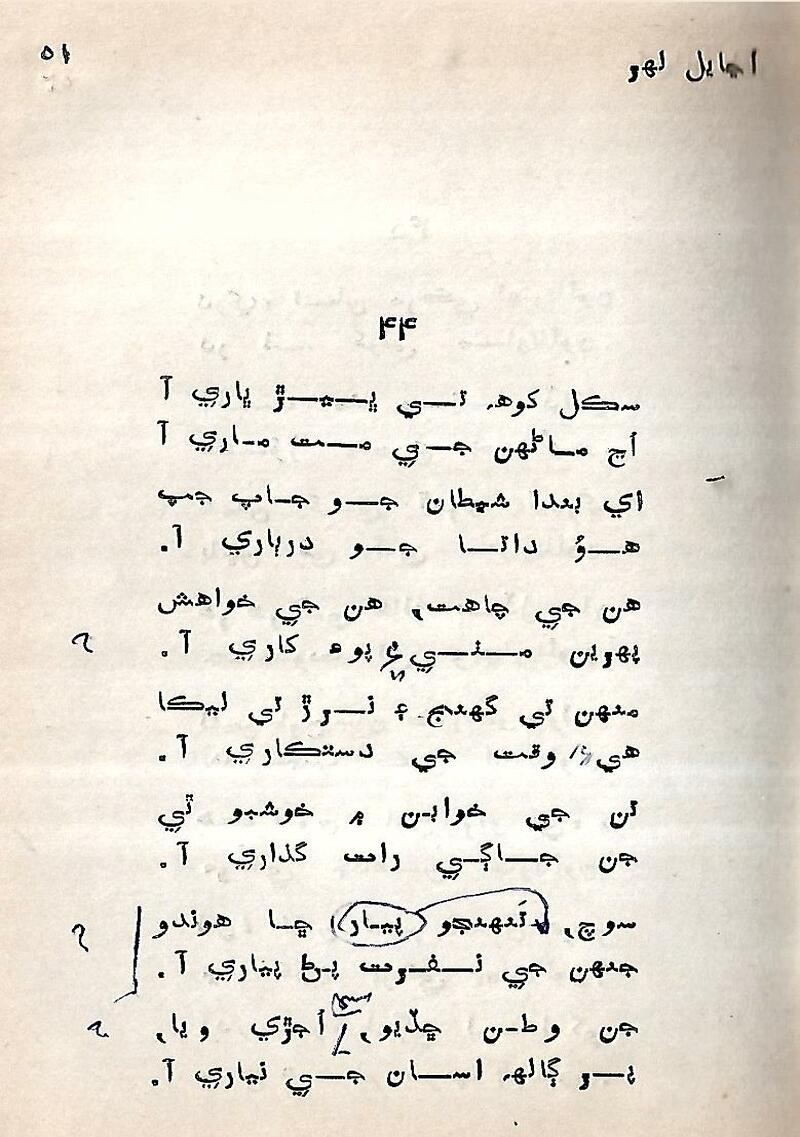 اڃايل لهر
٥١
۴۴
سڪل کوهہ تي ڀيڙ ڀاري آ
اڄ ماڻهن جي مت ماري آ
اي بندا شيطان جو جاپ جپ
هوُ داتا جو درٻاري آ.
هن جي چاهت, هن جي خواهش
پهرين مني ۽ پوءِ کاري آ.
منهن تي گهنج ۽ نرڙ تي ليڪا
هيءَ وقت جي دستڪاري آ.
تن جي خوابن ۾ خوشبو ٿي
جن جاڳي رات گذاري آ.
سوچ, تنهنجو پيار ڇا هوندو
جنهن جي نفرت پڻ پياري آ.
جن وطن ڇڏيو, اُجڙي ويا,
پر ڳالهہ اسان جي نياري آ.